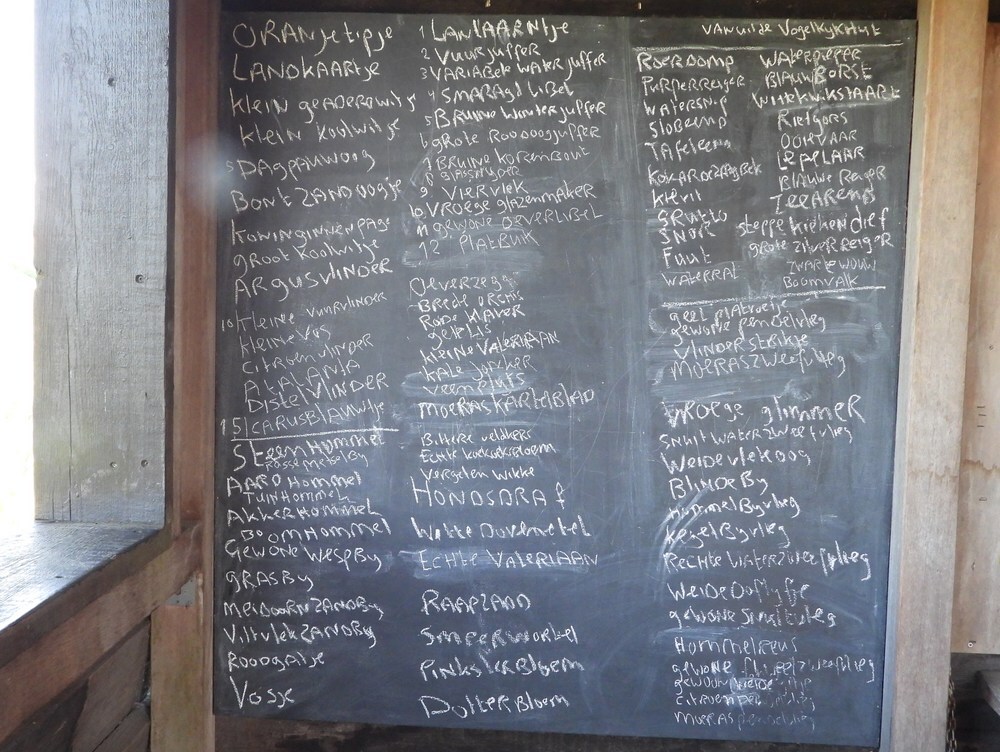 ORANJetipje
LANDKAARtje
Klein geADERDwitje
Klein Koolwitje
5 DAGPAUWOOG
BONTZANDOOGje
KONINGINNENPAGE
groot Koolwitje
ARGUSVLINDER
10 Kleine VUURVLINDER
Kleine VOS
CITROENVLINDER
ATALANTA
DISTELVLINDER
15 ICARUSBLAUWtje
STeenHommel
Rosse MetselBy
AARDHommel
TuinHommel
AkkerHommel
BoomHommel
Gewone WespBy
GRASBY
MeiDoornZANDBy
ViltvlekZANDBy
ROODGATje
Vosje
1 LANTAARNtje
2 VuurJuffer
3 VARIABele WATERJuffer
4 SMARAGDLIBEL
5 BRUINE WinterJuffer
6 grote ROODOOGJuffer
7 BRUINE KORENBOUT
8 GLASSNIJDER
9 VIERVLEK
10 VROEGE glAZENMAKER
11 gewone OEVERLIBEL
12 PLATBUIK
OeverZegge
BREDE ORCHIS
Rode KLAVER
gele Lis
kleine VALERIAAN
KALE Jonker
veenpluis
MOERASKARTELBLAD
Bittere veldkers
Echte koekoeksbloem
Vergeten Wikke
HONDSDRAf
Witte Dovenetel
Echte VALERIAAN
RAAPZAAD
SmeerWortel
PinksterBloem
DotterBloem
VANUITDE VogelKyKHut
ROERDOMP
PURPERREIGER
WATERSNIP
Slobeend
TAFeleend
KOKARDEZAAGBEK
Kievit
GRUTTO
SNOR
Fuut
WATERRAL
WATERPIEPER
BLAUWBORST
WitteKWIKSTAART
Rietgors
OOIEVAAR
LEPELAAR
BLAUWE Reiger
ZEEAREND
steppe kiekendief
grote Zilver Reiger
ZWARTE WOUW
BOOMVALK
geel platvoetje
gewone Pendelvlieg
VLINDERstrikje
MOERASZWEEfvlieg
VROEGE glimmer
SNUIT WATERZWeefvlieg
WeideVlekoog
BLINDEBy
HommelByvlieg
KegelByvlieg
Rechte WATERZWeefvlieg
WeideDoflyfje
gewone Snuitvlieg
HommelReus
gewone fluweelzweefvlieg
gewoon Weide
CITROENPendelvlieg
MOERASPendelvlieg